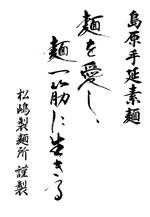 島原手延素麺
麺を愛し、
麺一筋に生きる
松嶋製麺所 謹製